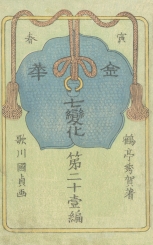 寅
春
金
華
七變化
第二十壹編
鶴亭秀賀著
歌川國貞画